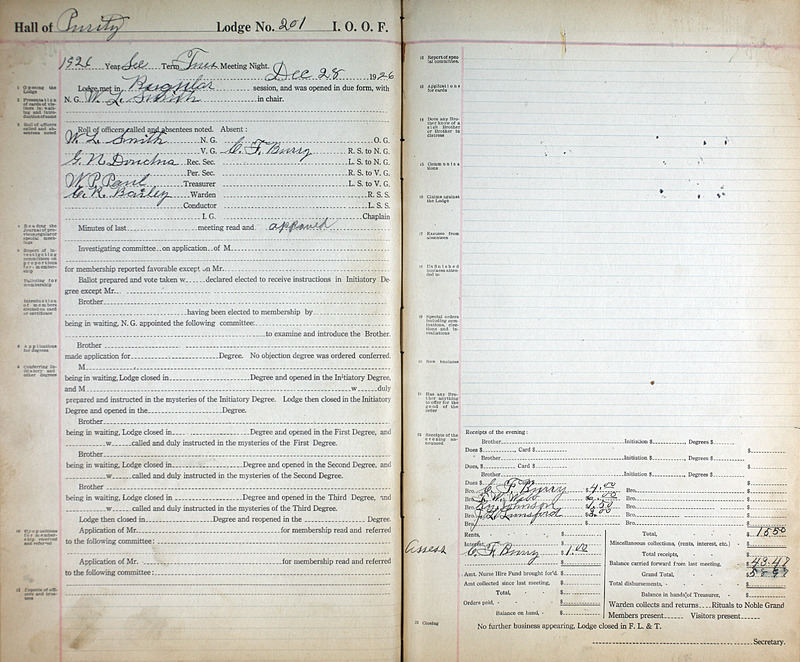 Hall of Purity Lodge No. 201 I. O. O. F.
1926 Year Sec Term Tues Meeting Night. Dec 28 1926
1 Opening the Lodge
Lodge met in Regular session, and was opened in due form, with
N. G. W. L. Smith in chair.
Roll of officers called and absentees noted. Absent:
W. L. Smith N. G. O. G.
V. G. C. F. Burry R. S. to N. G.
G. N. Rec. Sec. L. S. to N. G.
Per. Sec. R. S. to V. G.
W. P. Paul Treasurer L. S. to V. G.
C. R. Bailey Warden R. S. S.
Conductor L. S. S.
I. G. Chaplain
Minutes of last meeting read and approved
Investigating committee on application of M
for membership reported favorable except on Mr.
Balloting for membership
Ballot prepared and vote taken w declared elected to receive instructions in Initiatory De
gree except Mr.
Brother
having been elected to membership by
being in waiting, N. G. appointed the following committee:
to examine and introduce the Brother.
Applications for degrees
Brother
made application for Degree. No objection degree was ordered conferred.
M
being in waiting, Lodge closed in Degree and opened in the Initiatory Degree,
and M w duly
prepared and instructed in the mysteries of the Initiatory Degree. Lodge then closed in the Initiatory
Degree and opened in the Degree.
Brother
being in waiting, Lodge closed in Degree and opened in the First Degree, and
w called and duly instructed in the mysteries of the First Degree.
Brother
being in waiting, Lodge closed in Degree and opened in the Second Degree, and
w called and duly instructed in the mysteries of the Second Degree.
Brother
being in waiting, Lodge closed in Degree and opened in the Third Degree, and
w called and duly instructed in the mysteries of the Third Degree.
Lodge then closed in Degree and reopened in the Degree.
Application of Mr. for membership read and referred
to the following committee:
Application of Mr. for membership read and referred
to the following committee:
Report of special committees.
Applications for cards
Does any Brother know of a sick Brother or Brother in distress
Communications
Claims against the Lodge
Excuses from absentees
Unfinished business attended to
New business
Has any Brother anything to offer for the good of the order
Receipts of the evening announced
Receipts of the evening:
Brother Initiation $ , Degrees $
Dues $ , Card $ $
Brother Initiation $ , Degrees $
Dues, $ Card $ $
Brother Initiation $ , Degrees $
Dues $ Card $
Bro. C. F. Burry $ 4.00 Bro. $
Bro. $ Bro. $
Bro. Johnson $ Bro. $
Bro. Lunsford $ 3.00 Bro. $
Bro. $ Bro. $
Rents, $ Total, $
Interest, $ Miscellaneous collections, (rents, interest, etc.) $
Assess C. F. Burry $ 1.00 Total receipts, $
Balance carried forward from last meeting, $ 43.47
Amt. Nurse Hire Fund brought for'd. $ Grand Total, $
Amt collected since last meeting, $ Total disbursements, $
Total, $ Balance in hands of Treasurer, $
Orders paid, $ Warden collects and returns Rituals to Noble Grand
Balance on hand, $ Members present Visitors present
Closing
No further business appearing, Lodge closed in F. L. & T.
Secretary.